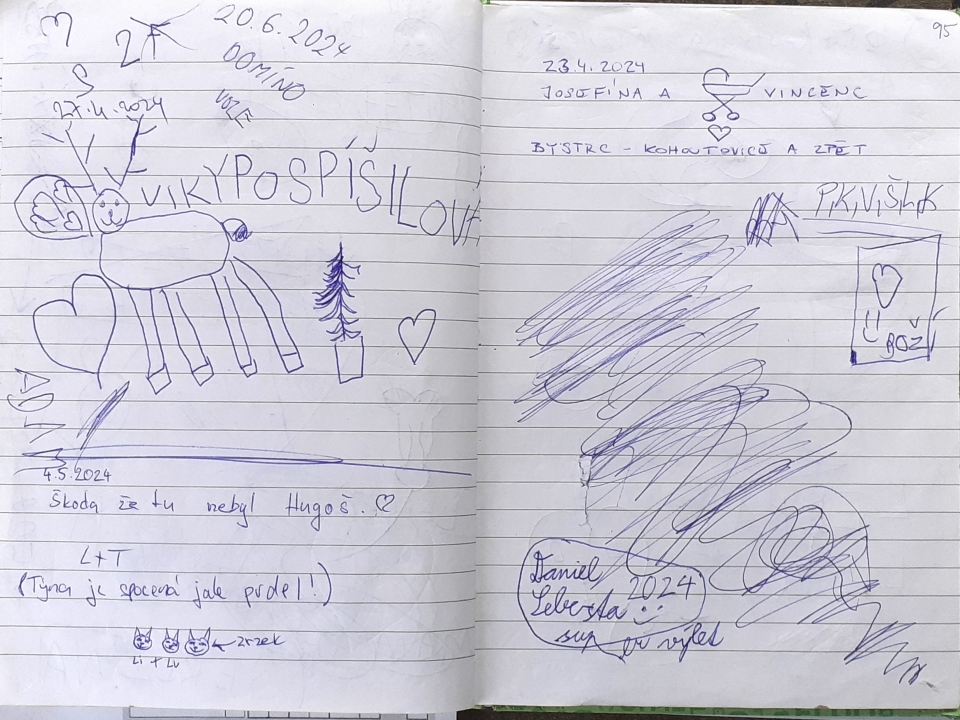 20.6.2024
DOMÍNO
VOLE
27.4.2024
VIKY POSPÍŠILOVÁ
4.5.2024
Škoda že tu nebyl Hugoš.
L+T
(Týna je spocená jak prdel!)
zrzek
Li + Lu
95
23.4.2024
JOSEFÍNA A VINCENC
BYSTRC - KOHOUTOVICE A ZPĚT
BOŽÍ
Daniel
2024
super výlet